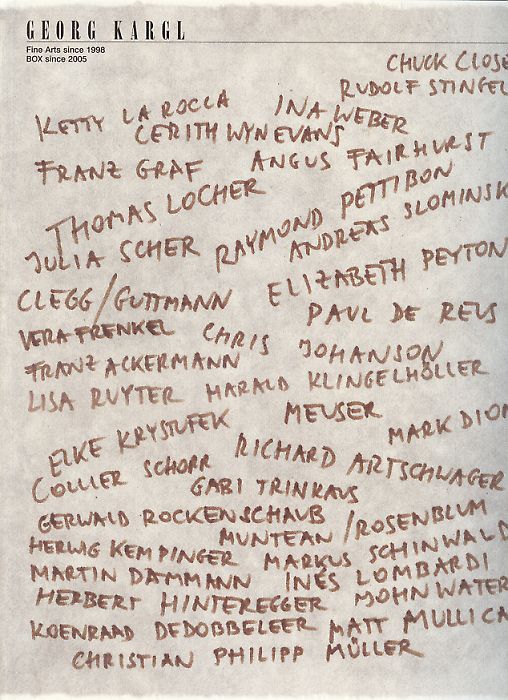 GEORG KARGL
Fine Arts since 1998
BOX since 2005
CHUCK CLOSE
RUDOLF STINGEL
KETTY LA ROCCA INA WEBER
CERITH WYN EVANS
FRANZ GRAF ANGUS FAIRHURST
THOMAS LOCHER RAYMOND PETTIBON
JULIA SCHER ANDREAS SLOMINSK
CLEGG/GUTTMANN ELIZABETH PEYTON
VERA FRENKEL CHRIS JOHANSON PAUL DE REUS
FRANZ ACKERMANN
LISA RUYTER HARALD KLINGELHÖLLER
MEUSER MARK DION
ELKE KRYSTUFEK RICHARD ARTSCHWAGER
COLLIER SCHORR
GABI TRINKAUS
GERWALD ROCKENSCHAUB
MUNTEAN/ROSENBLUM
HERWIG KEMPINGER MARKUS SCHINWALD
MARTIN DAMMANN INÉS LOMBARDI
HERBERT HINTEREGGER JOHN WATER
KOENRAAD DEDOBBELEER MATT MULLICA
CHRISTIAN PHILIPP MÜLLER